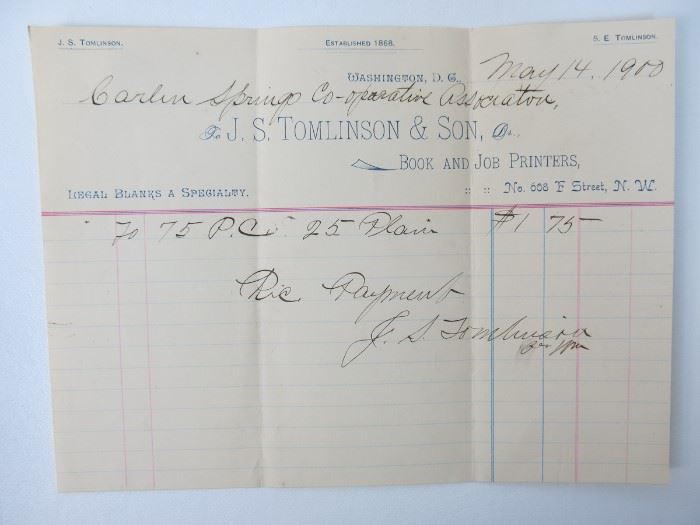 J. S. Tomlinson. Established 1868. S. E. Tomlinson.
Washington, D. C., May 14, 1900
Carlin Springs Co-oparative Association,
To J. S. Tomlinson & Son, Dr.,
Book and Job Printers,
Legal Blanks a Specialty. :: :: No. 608 F Street, N. W.
To 75 P.Cs. 25 Plain $1 75
Rec Payment
J. S. Tomlinson